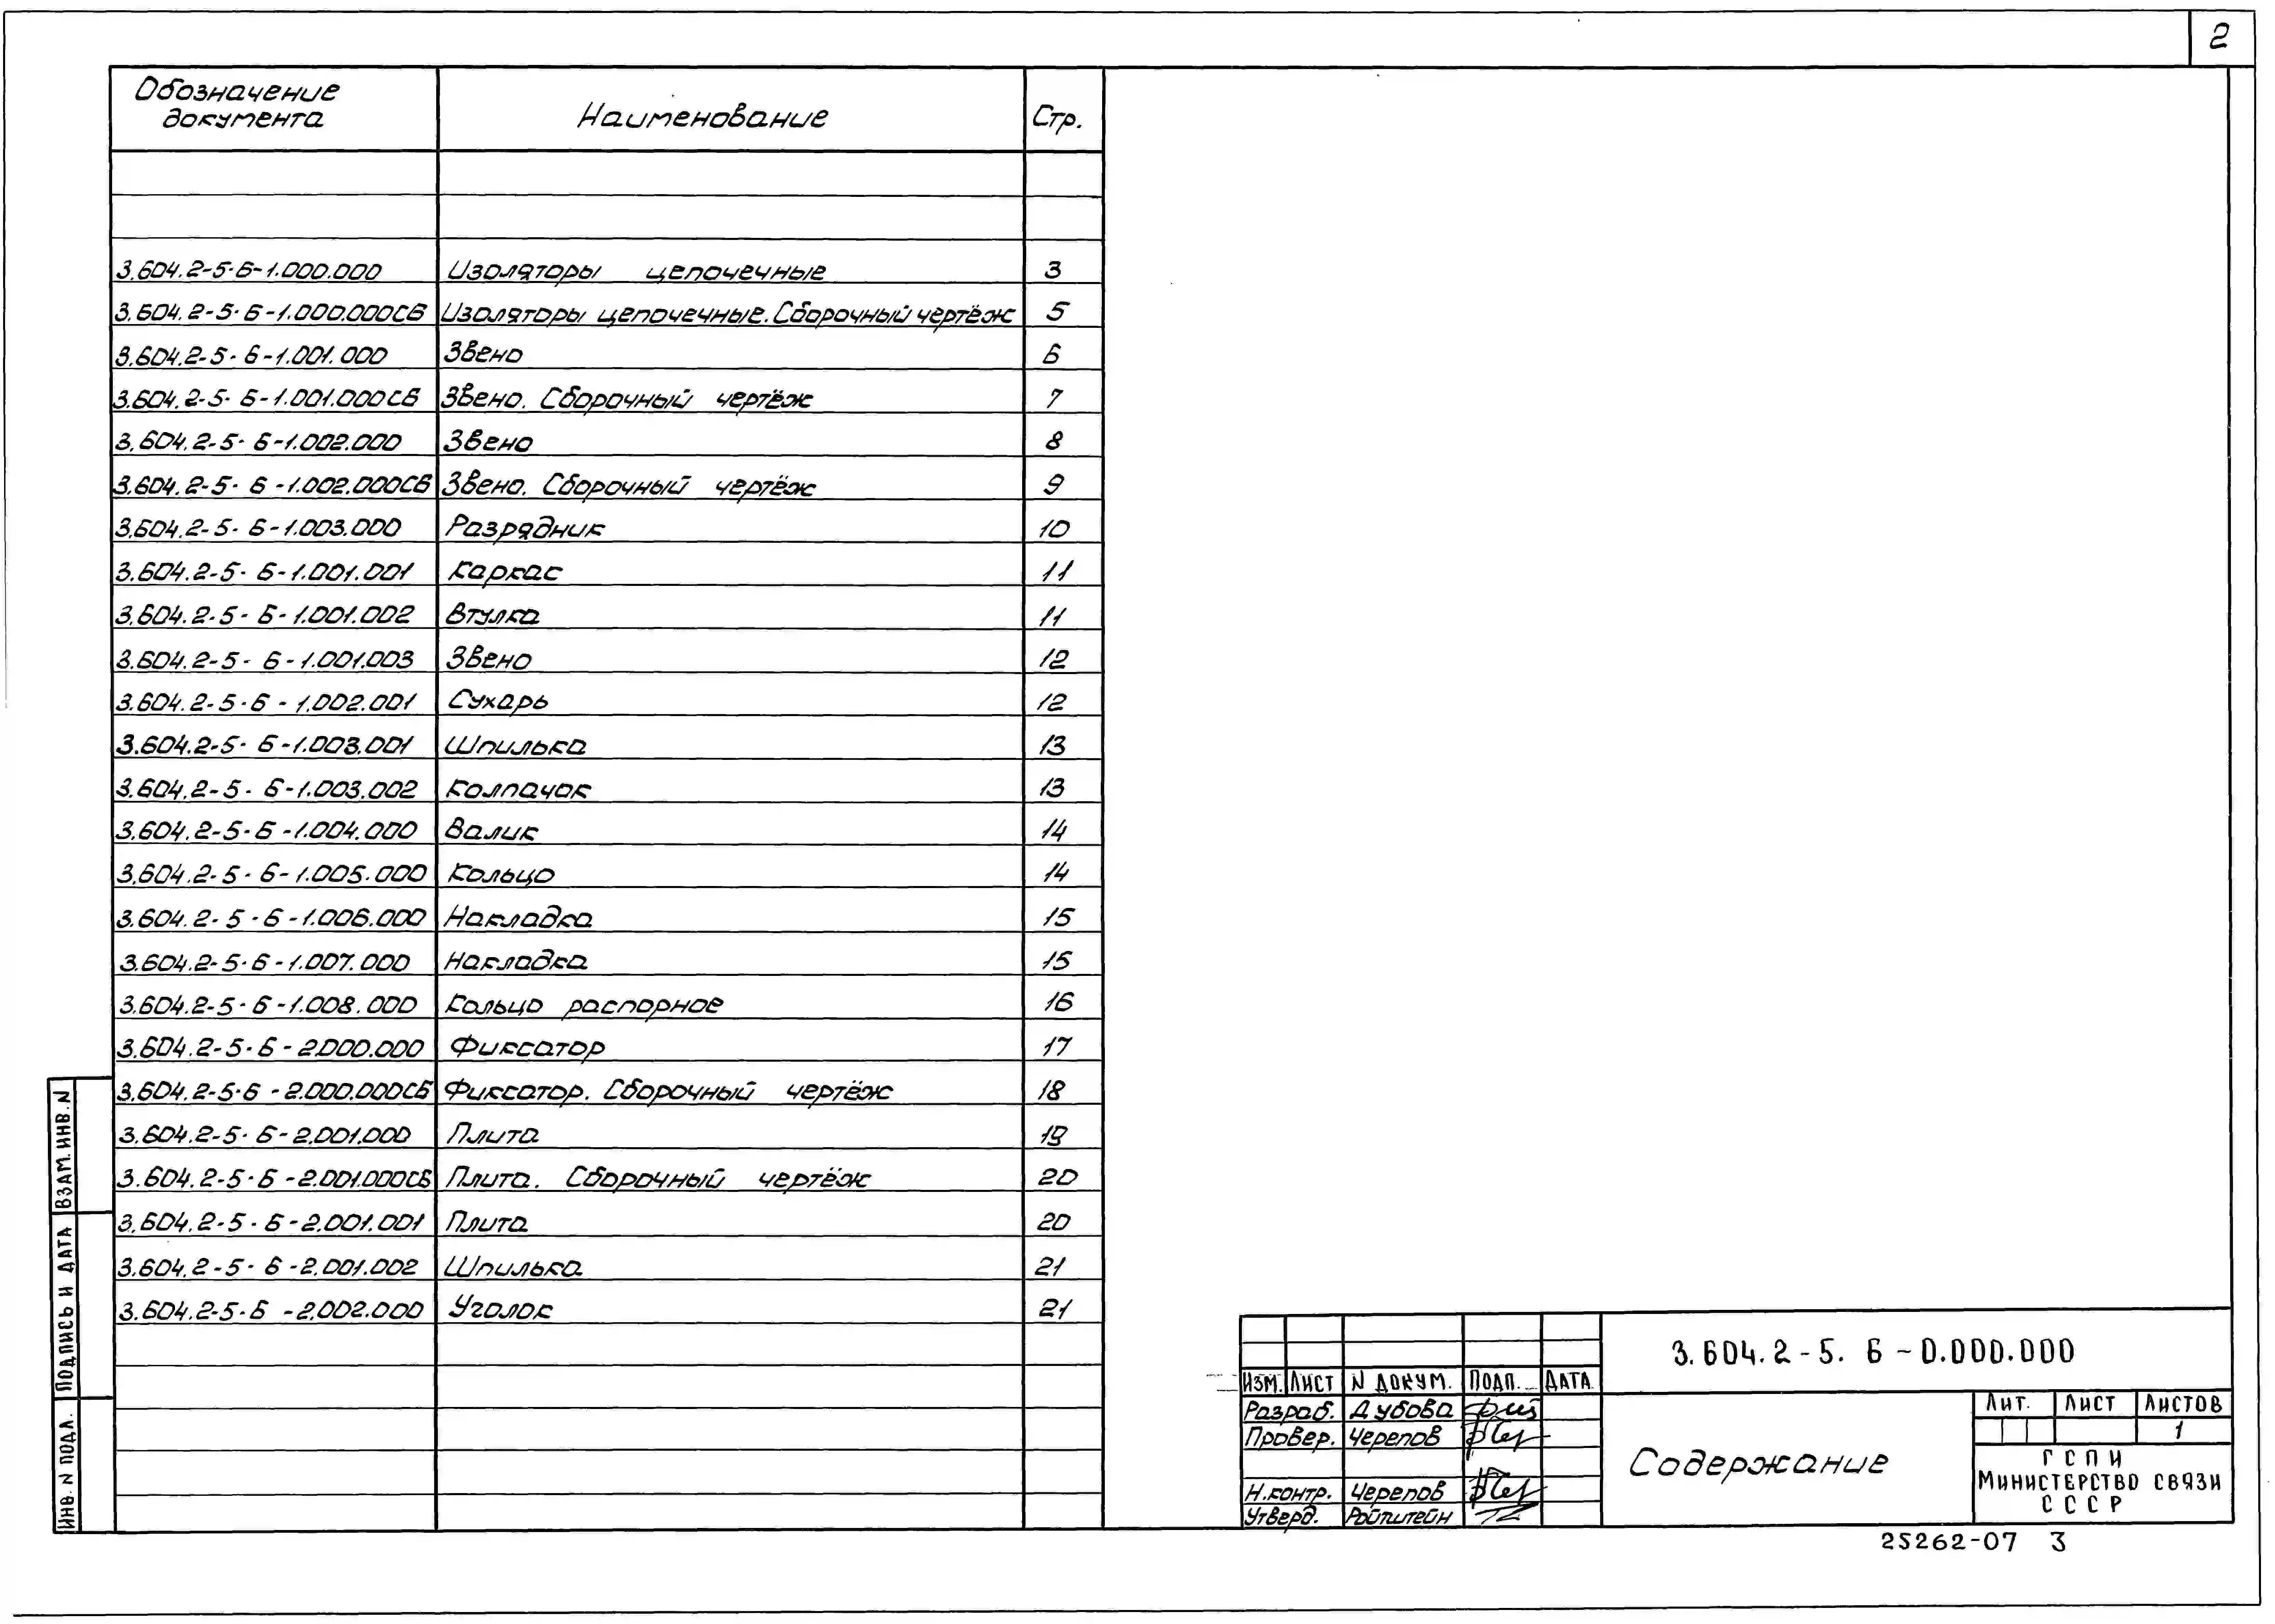 2
Обозначение документа Наименование Стр.
3.604.2-5.6-1.000.000 Изоляторы цепочечные 3
3.604.2-5.6-1.000.000СБ Изоляторы цепочечные. Сборочный чертёж 5
3.604.2-5.6-1.001.000 Звено 6
3.604.2-5.6-1.001.000СБ Звено. Сборочный чертёж 7
3.604.2-5.6-1.002.000 Звено 8
3.604.2-5.6-1.002.000СБ Звено. Сборочный чертёж 9
3.604.2-5.6-1.003.000 Разрядник 10
3.604.2-5.6-1.001.001 Каркас 11
3.604.2-5.6-1.001.002 Втулка 11
3.604.2-5.6-1.001.003 Звено 12
3.604.2-5.6-1.002.001 Сухарь 12
3.604.2-5.6-1.003.001 Шпилька 13
3.604.2-5.6-1.003.002 Колпачок 13
3.604.2-5.6-1.004.000 Валик 14
3.604.2-5.6-1.005.000 Кольцо 14
3.604.2-5.6-1.006.000 Накладка 15
3.604.2-5.6-1.007.000 Накладка 15
3.604.2-5.6-1.008.000 Кольцо распорное 16
3.604.2-5.6-2.000.000 Фиксатор 17
3.604.2-5.6-2.000.000СБ Фиксатор. Сборочный чертёж 18
3.604.2-5.6-2.001.000 Плита 19
3.604.2-5.6-2.001.000СБ Плита. Сборочный чертёж 20
3.604.2-5.6-2.001.001 Плита 20
3.604.2-5.6-2.001.002 Шпилька 21
3.604.2-5.6-2.002.000 Уголок 21
ВЗАМ. ИНВ. N
ПОДПИСЬ И ДАТА
ИНВ. N ПОДЛ.
3.604.2-5.6-0.000.000
ИЗМ. ЛИСТ N ДОКУМ. ПОДП. ДАТА
Разраб. Дубова
Провер. Черепов
Н.контр. Черепов
Утверд. Ройтштейн
Содержание
Лит. Лист Листов
1
ГСПИ
Министерство связи
СССР
25262-07 3